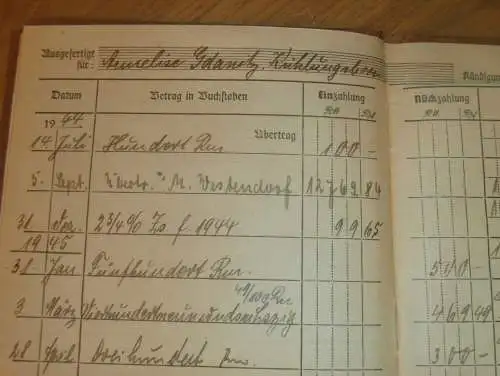 Ausgefertigt für: Annelise Gdanitz, Kühlungsborn
Kündigung
Datum Betrag in Buchstaben Einzahlung Rückzahlung
RM Rpf RM Rpf
1944 Übertrag
14 Juli Hundert Rm. 100 -
5. Sept. Übertr. M. Westendorf 1276984
31 Dez. 2 3/4 % Zs f. 1944 9965
1945
31 Jan Fünfhundert Rm. 500 -
49/100 Rm
3 März Vierhundertneunundsechszig 46949
28 April Dreihundert Rm. 300 -